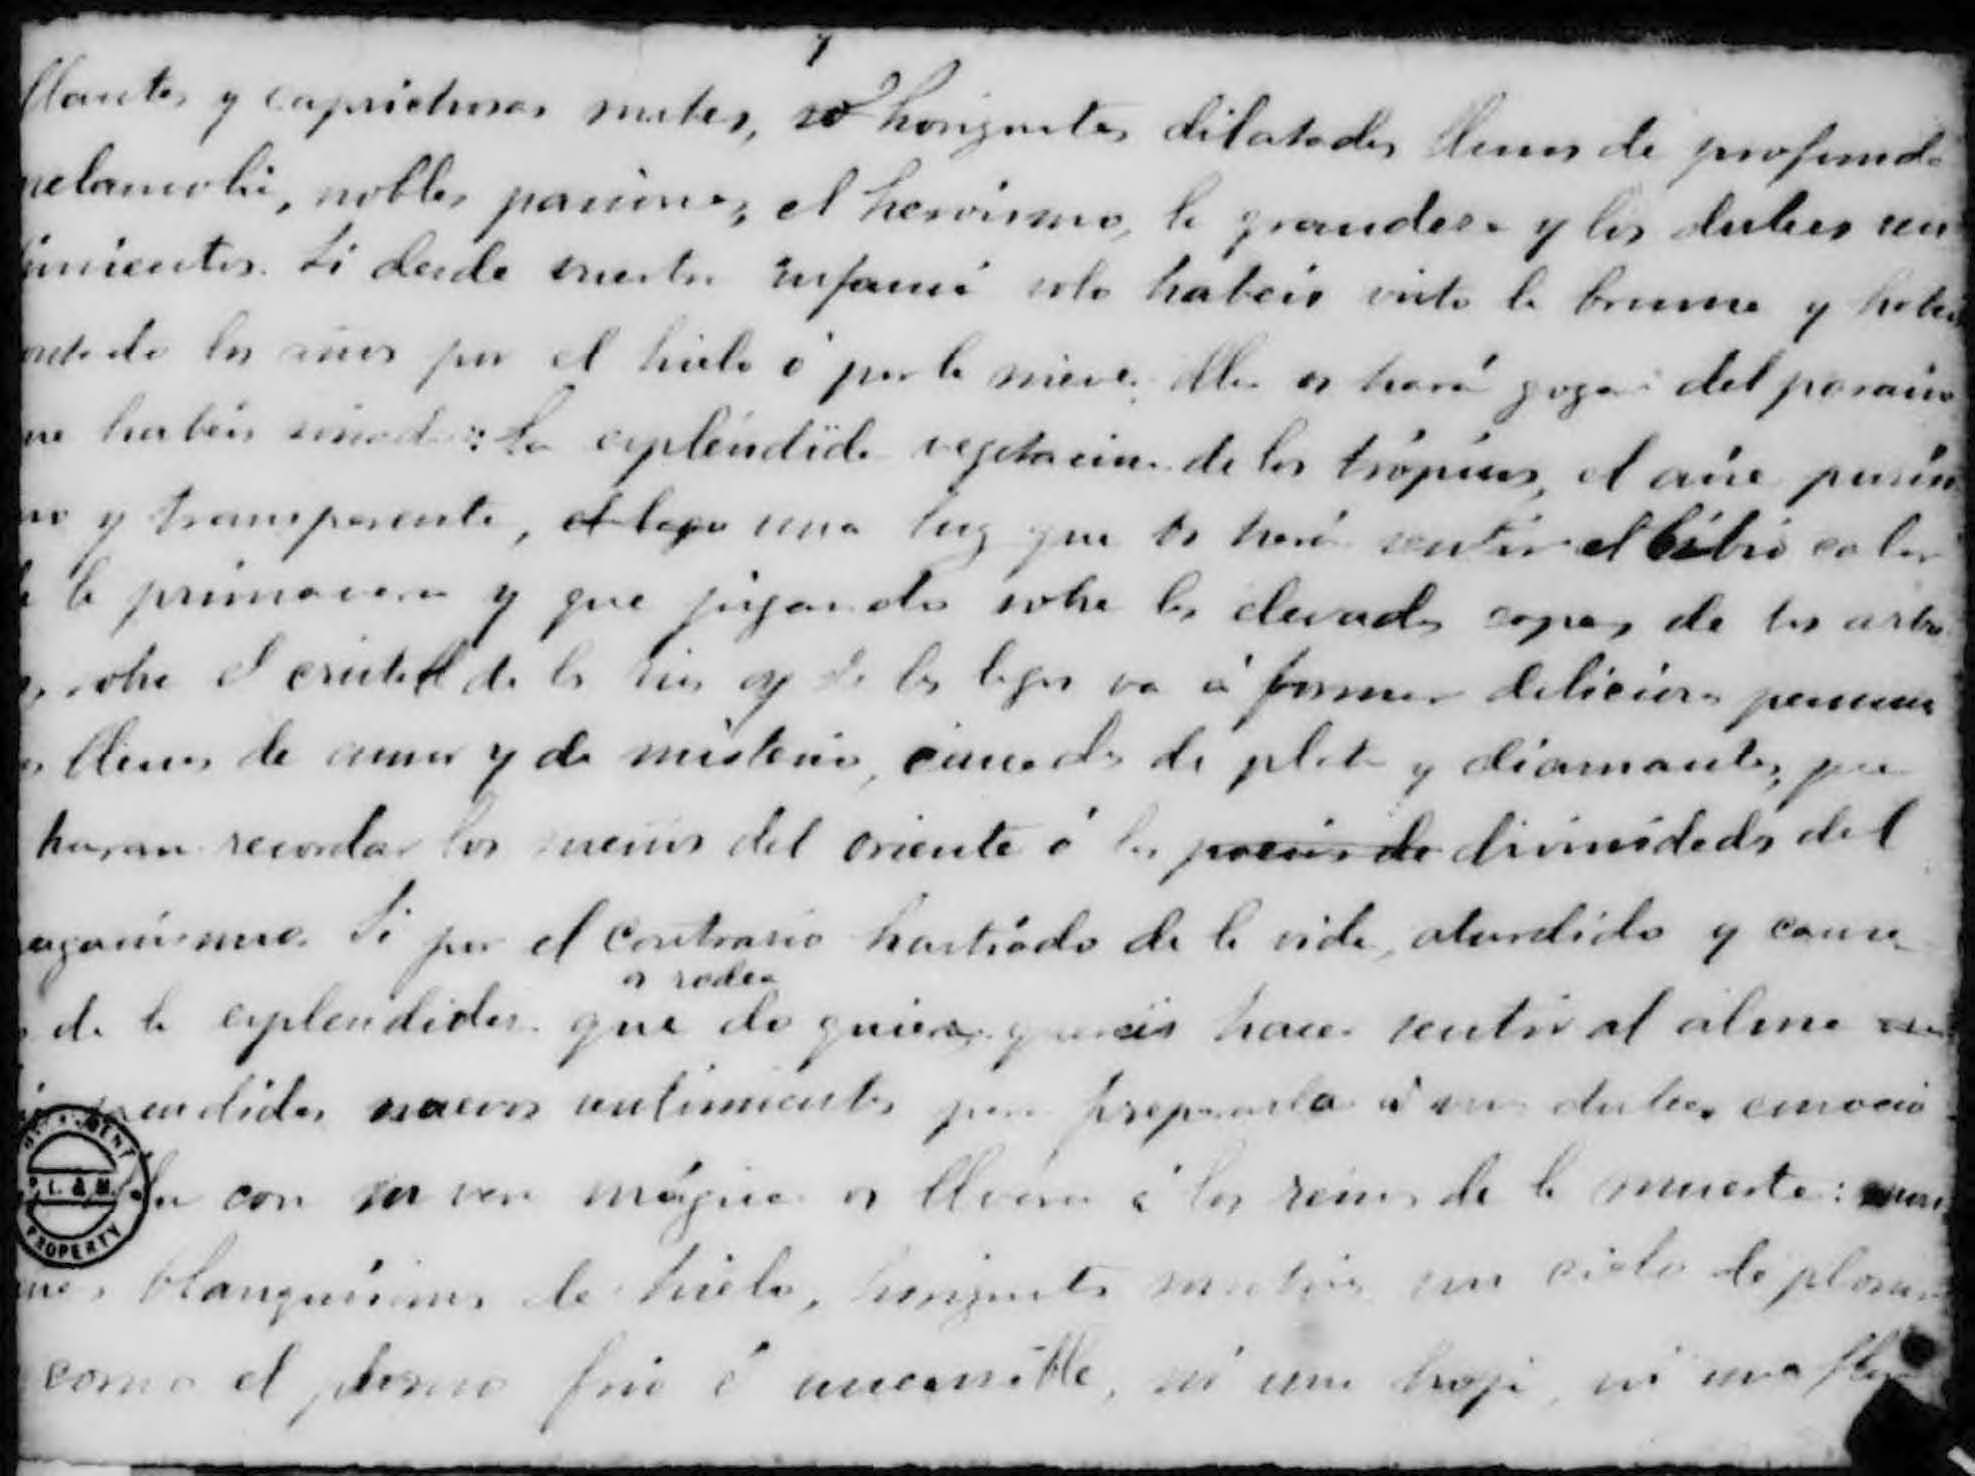 7
llantes y caprichosos matices, horizontes dilatados llenos de profunda
melancolia, nobles pasiones, el heroismo, la grandeza y los dulces sen
timientos. Si desde vuestra infancia solo habeis visto la bruma y habeis
contado los años por el hielo ó por la nieve, ella os hará gozar del paraiso
que habeis soñado: la espléndida vegetacion de los trópicos, el aire purísi
mo y transparente, el lago una luz que os hará sentir el tibio calor
de la primavera y que jugando sobre las elevadas copas de los arbo
les, sobre el cristal de los rios y de los lagos va á formar deliciosas penum
bras llenas de amor y de misterio, de plata y diamantes, que
haran recordar los sueños del oriente ó las poesias de divinidades del
paganismo. Si por el contrario hastiado de la vida, aturdido y cansa
os rodea
de la esplendidez que do quiera quereis hacer sentir al alma
nuevos sentimientos para prepararla á mas dulces emocio
con su vara mágica os llevará á los reinos de la muerte:
blanquísimas de hielo, horizontes un cielo de plomo
como el plomo frio é inaccesible, ni una hoja, ni una flor
P.I. & M.
PROPERTY